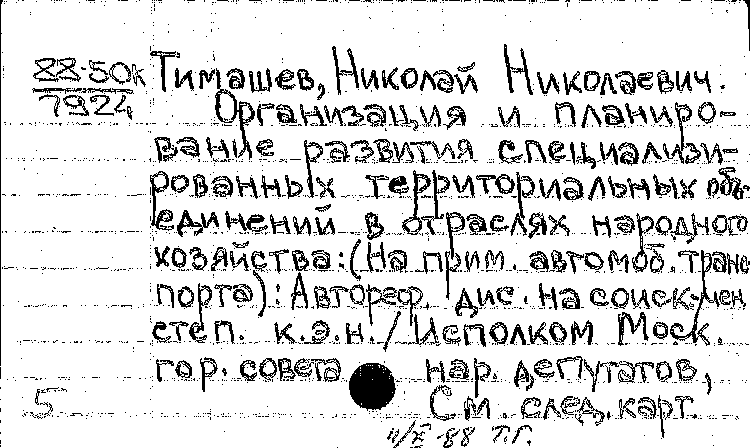 88-50к Тимашев, Николай Николаевич.
7924 Организация и планиро-
вание развития специализи-
рованных территориальных объ-
единений в отраслях народного
хозяйства: (На прим. автомоб. транс
порта): Автореф. дис. на соиск. учен.
степ. к.э.н. / Исполком Моск.
гор. совета нар. депутатов,
5 См. след. карт.
88 Т.Г.